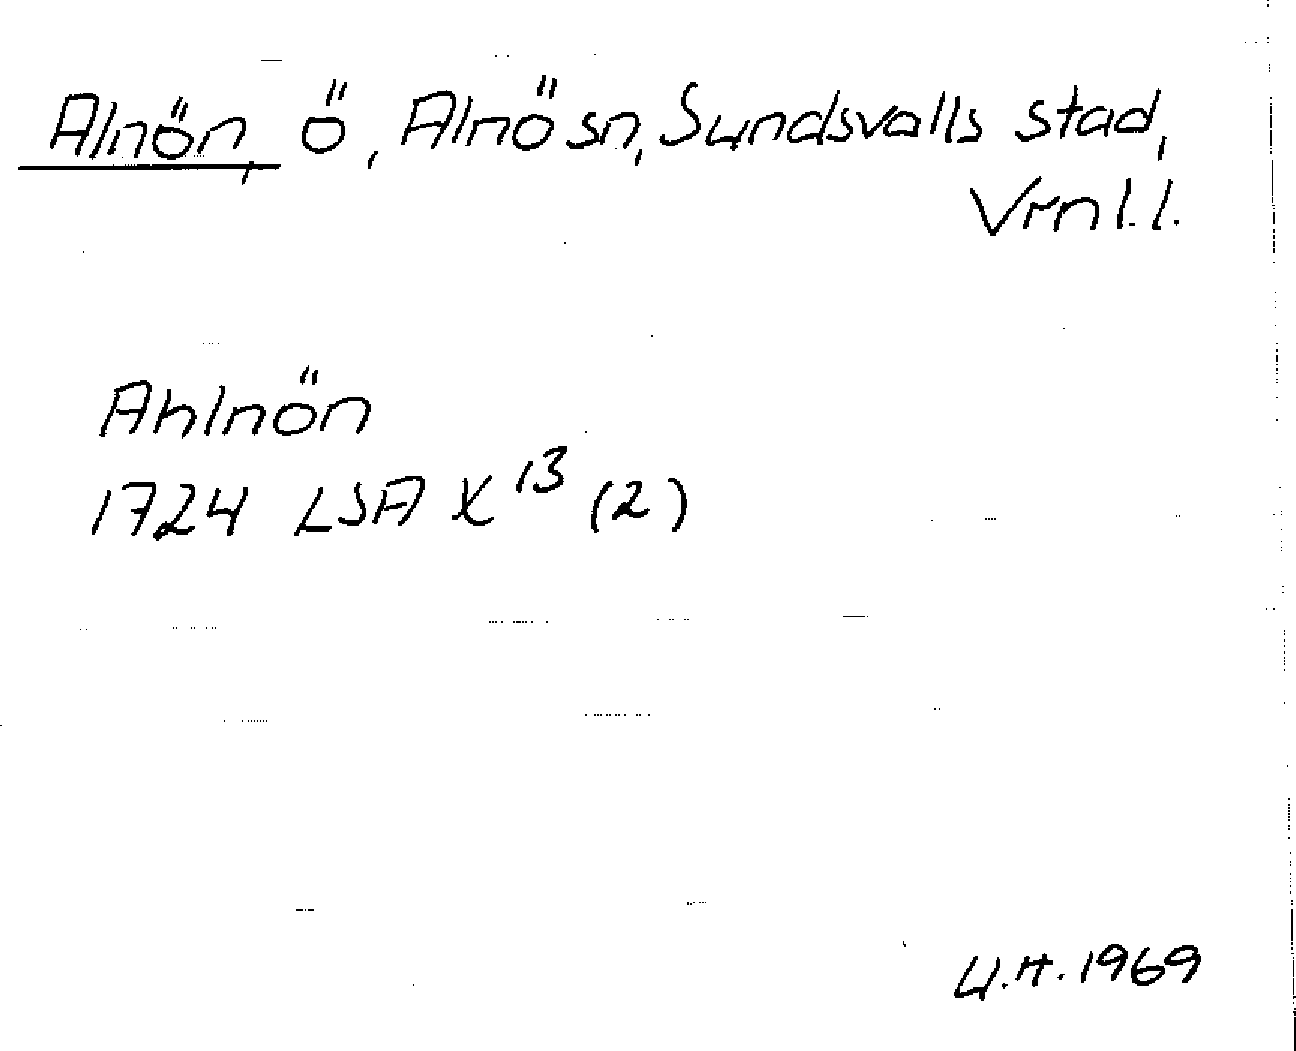 Alnön, ö, Alnö sn, Sundsvalls stad,
Vrnl.l.
Ahlnön
1724 LSA X¹³ (2)
U.H. 1969